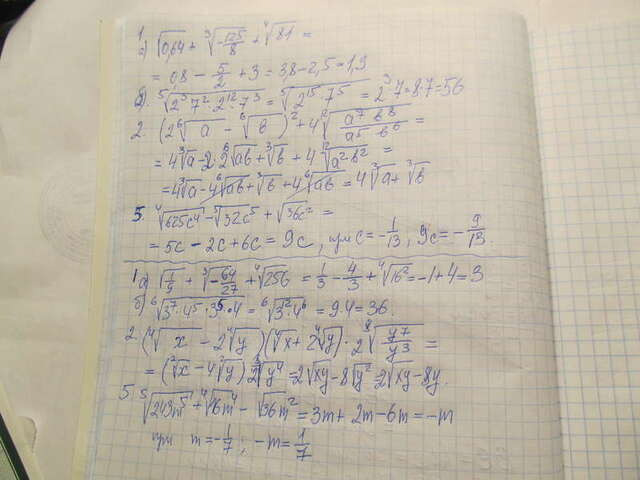 1.
а) √0,64 + ∛(-125/8) + ⁴√81 =
= 0,8 - 5/2 + 3 = 3,8 - 2,5 = 1,3
б). ⁵√(2³7²·2¹²·7³) = ⁵√(2¹⁵7⁵) = 2³7 = 8·7 = 56
2. (2⁶√a - ⁶√b)² + 4 ¹²√(a⁷b⁸/a⁵b⁶) =
= 4∛a - 2·2⁶√ab + ∛b + 4 ¹²√(a²b²) =
= 4∛a - 4⁶√ab + ∛b + 4⁶√ab = 4∛a + ∛b
5. ⁴√(625c⁴) - ⁵√(32c⁵) + √(36c²) =
= 5c - 2c + 6c = 9c, при c = -1/13, 9c = -9/13.
1 а) √(1/9) + ∛(-64/27) + ⁴√256 = 1/3 - 4/3 + ⁴√16² = -1 + 4 = 3
б) ⁶√(3⁷·4⁵·3⁵·4) = ⁶√(3¹²·4⁶) = 9·4 = 36.
2. (⁴√x - 2⁴√y)(⁴√x + 2⁴√y)·2 ⁸√(y⁷/y³) =
= (²√x - 4²√y) 2 ⁸√y⁴ = 2√xy - 8√y² = 2√xy - 8y.
5 ⁵√(243m⁵) + ⁴√(16m⁴) - √(36m²) = 3m + 2m - 6m = -m
при m = -1/7; -m = 1/7